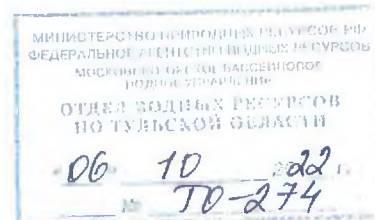 МИНИСТЕРСТВО ПРИРОДНЫХ РЕСУРСОВ РФ
ФЕДЕРАЛЬНОЕ АГЕНТСТВО ВОДНЫХ РЕСУРСОВ
МОСКОВСКО-ОКСКОЕ БАССЕЙНОВОЕ
ВОДНОЕ УПРАВЛЕНИЕ
ОТДЕЛ ВОДНЫХ РЕСУРСОВ
ПО ТУЛЬСКОЙ ОБЛАСТИ
"06" 10 2022 г.
№ ТО-274